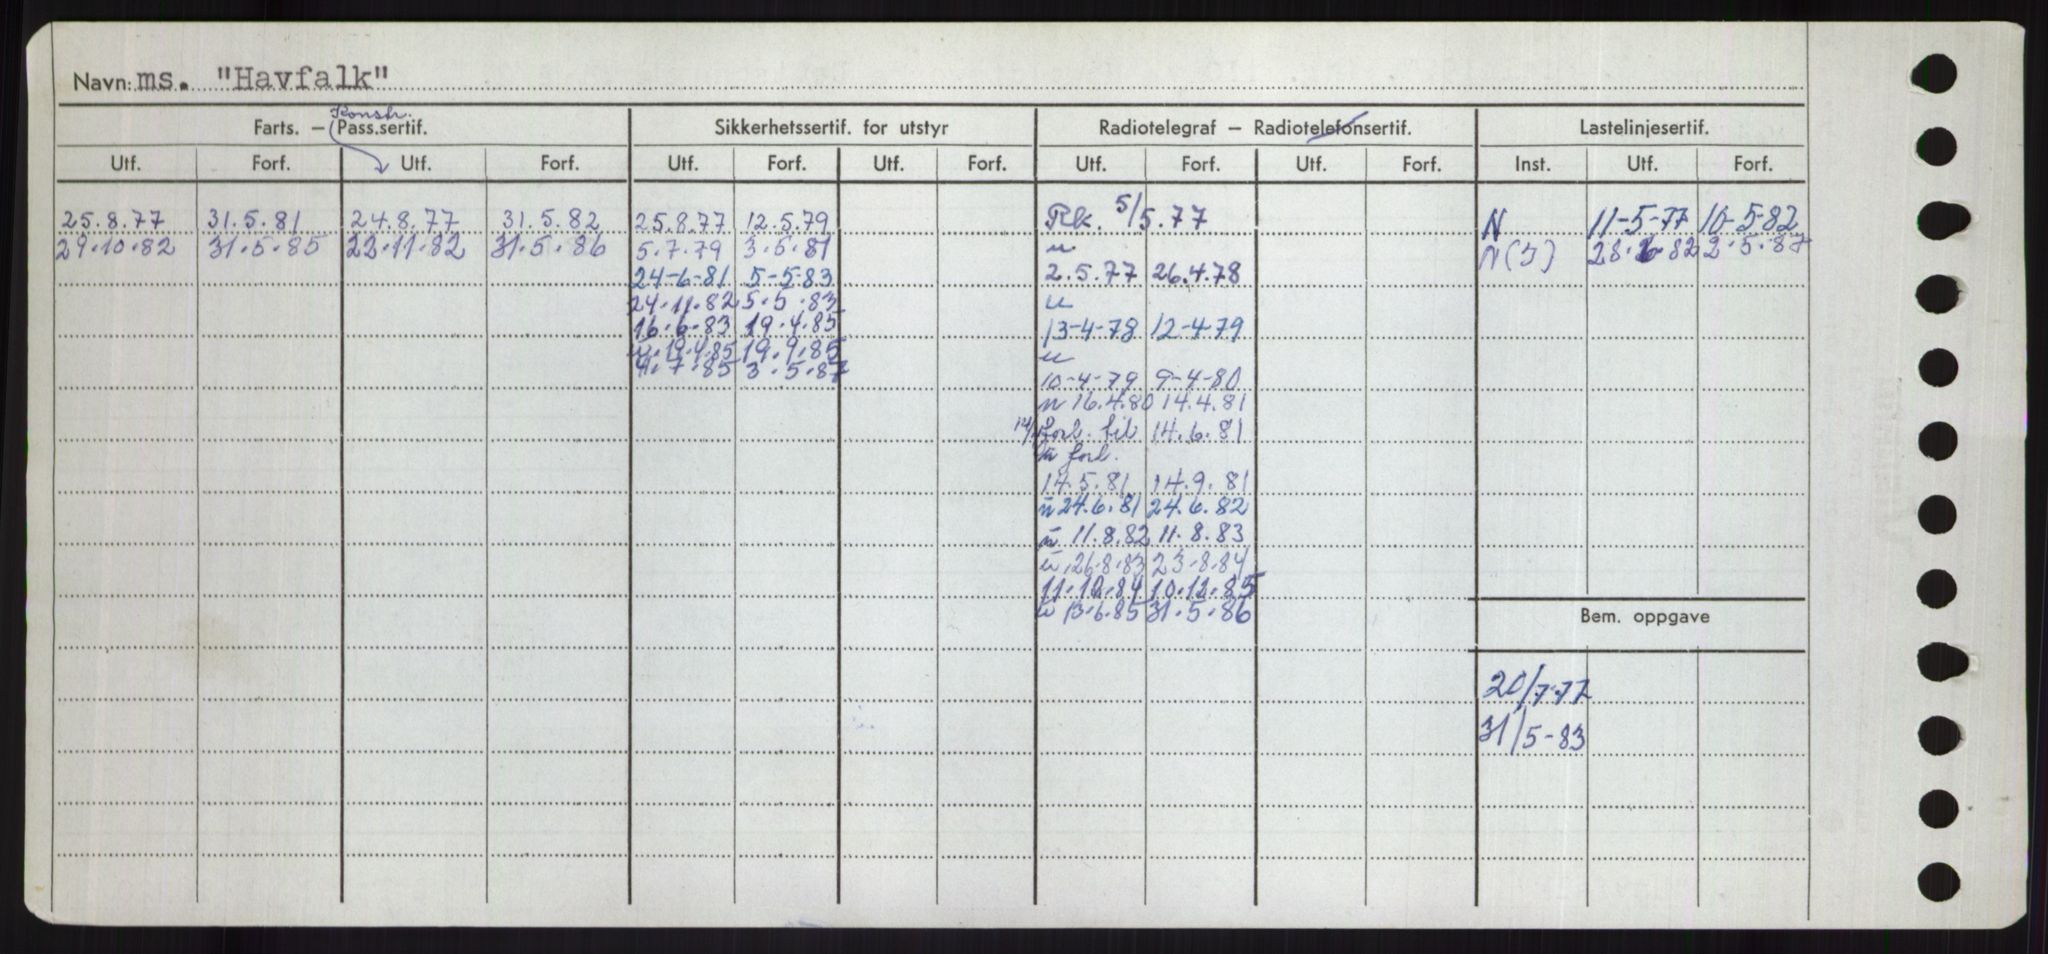 Navn: ms. "Havfalk"
Konstr.
Farts. – Pass.sertif. Sikkerhetssertif. for utstyr Radiotelegraf – Radiotelefonsertif. Lastelinjesertif.
Utf. Forf. Utf. Forf. Utf. Forf. Utf. Forf. Utf. Forf. Utf. Forf. Inst. Utf. Forf.
25.8.77 31.5.81 24.8.77 31.5.82 25.8.77 12.5.79 Rk. 5/5.77 N 11-5-77 10-5-82
29.10.82 31.5.85 22.11.82 31.5.86 5.7.79 3.5.81 u N(J) 28.6.82 2.5.87
24-6-81 5-5-83 2.5.77 26.4.78
24.11.82 5.5.83 u
16.6.83 19.4.85 13-4-78 12-4-79
u.19.4.85 19.9.85 u
4.7.85 3.5.87 10-4-79 9-4-80
u 16.4.80 14.4.81
forl. til 14.6.81
forl.
14.5.81 14.9.81
u 24.6.81 24.6.82
u 11.8.82 11.8.83
u 26.8.83 23-8.84
11.12.84 10.12.85
u 13.6.85 31.5.86
Bem. oppgave
20/7-77
31/5-83